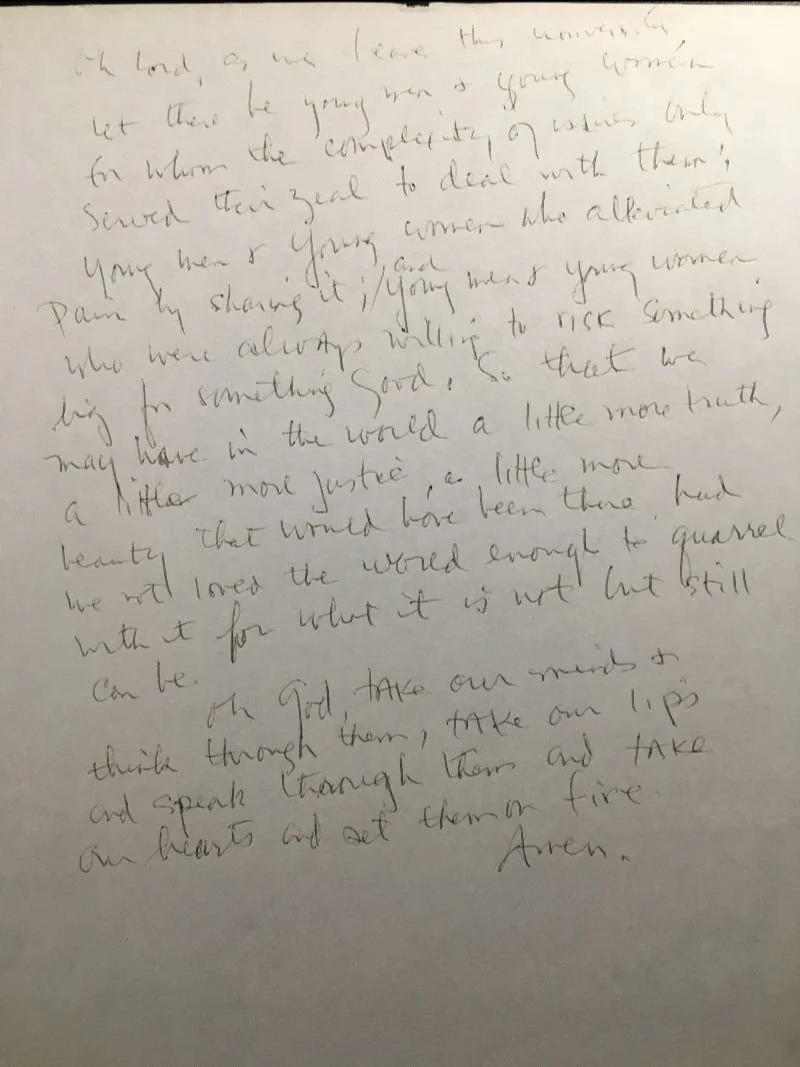 Oh Lord, as we leave this university,
Let there be young men & young women
for whom the complexity of issues only
Served their zeal to deal with them;
Young men & young women who alleviated
Pain by sharing it; / and young men & young women
who were always willing to risk something
big for something Good. So that we
may have in the world a little more truth,
a little more justice, a little more
beauty that would have been there had
we not loved the world enough to quarrel
with it for what it is not but still
can be.
Oh God, take our minds &
think through them, take our lips
and speak through them and take
our hearts and set them on fire.
Amen.